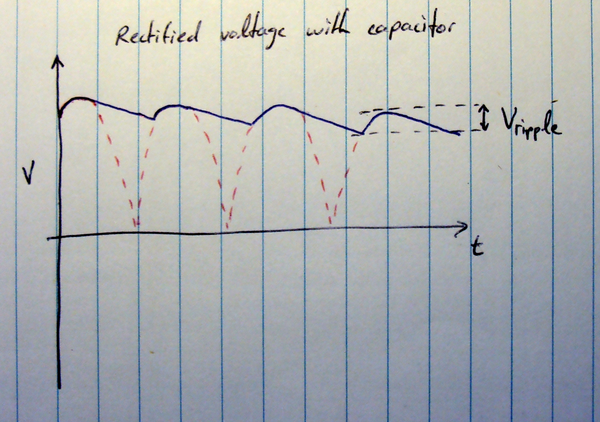 Rectified voltage with capacitor
V
Vripple
t